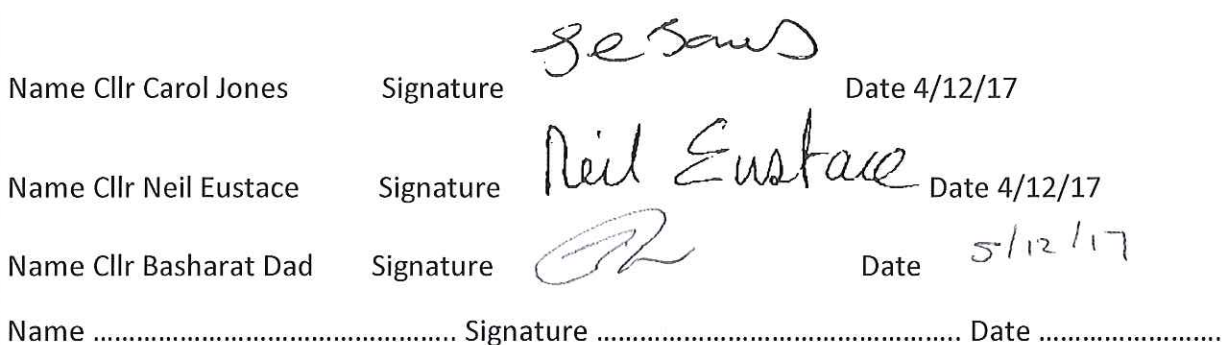 Name Cllr Carol Jones Signature Date 4/12/17
Name Cllr Neil Eustace Signature Neil Eustace Date 4/12/17
Name Cllr Basharat Dad Signature Date 5/12/17
Name .................................................. Signature .................................................. Date .........................